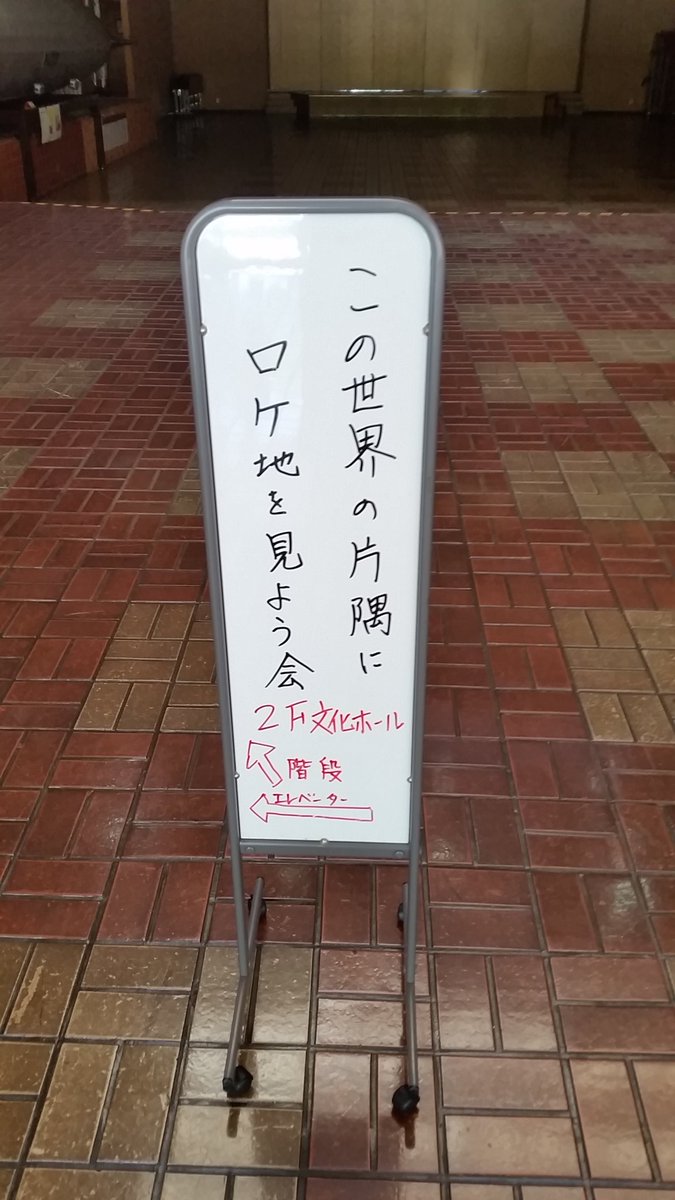 この世界の片隅に
ロケ地を見よう会
2F文化ホール
階段
エレベーター